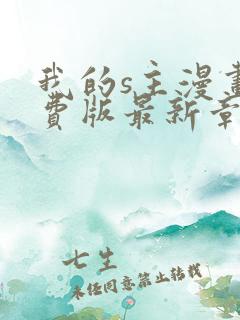 我的s主漫畫
費版最新章
七生
未经同意禁止转载